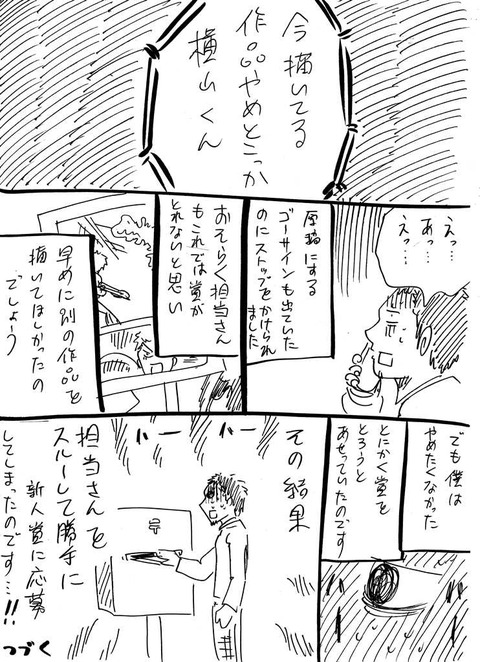 今描いてる
作品やめとこっか
横山くん
えっ…
あっ…
え…
原稿にする
ゴーサインも出ていた
のにストップをかけられ
ました
おそらく担当さん
もこれでは賞が
とれないと思い
早めに別の作品を
描いてほしかったの
でしょう
でも僕は
やめたくなかった
とにかく賞を
とろうと
あせっていたのです
その結果
ハー
ハー
〒
担当さんを
スルーして勝手に
新人賞に応募
してしまったのです…!!
つづく